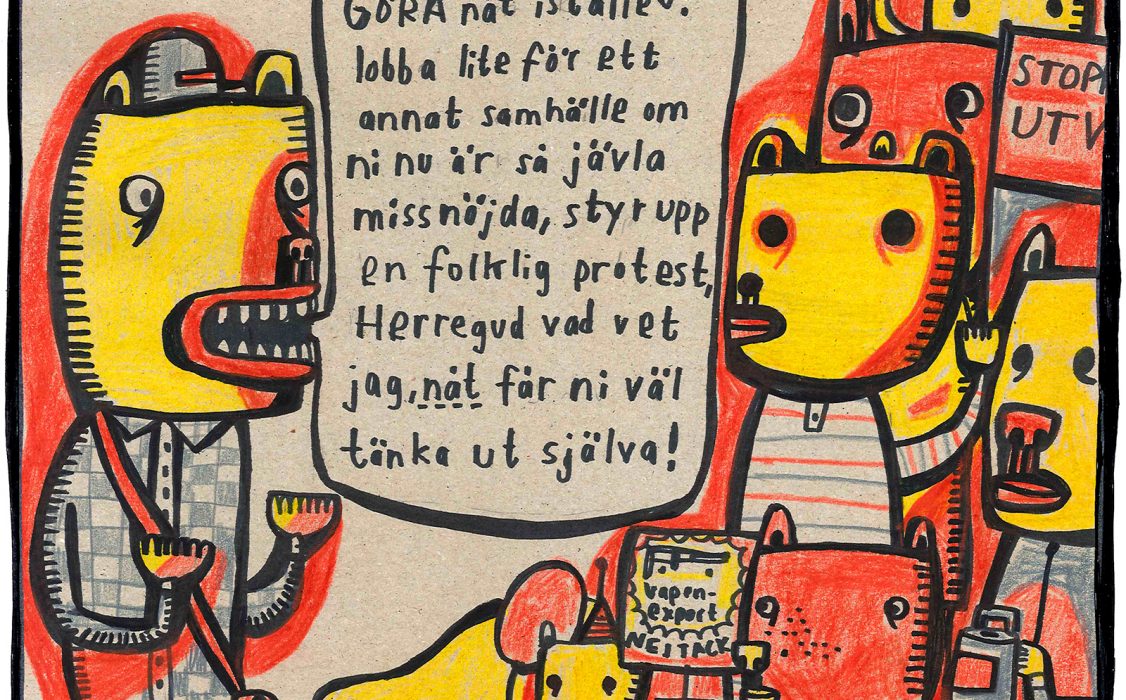 GÖRA nåt istället.
lobba lite för ett
annat samhälle om
ni nu är så jävla
missnöjda, styr upp
en folklig protest,
Herregud vad vet
jag, nåt får ni väl
tänka ut själva!
STOP
UTV
vapen-
export
NEJ TACK